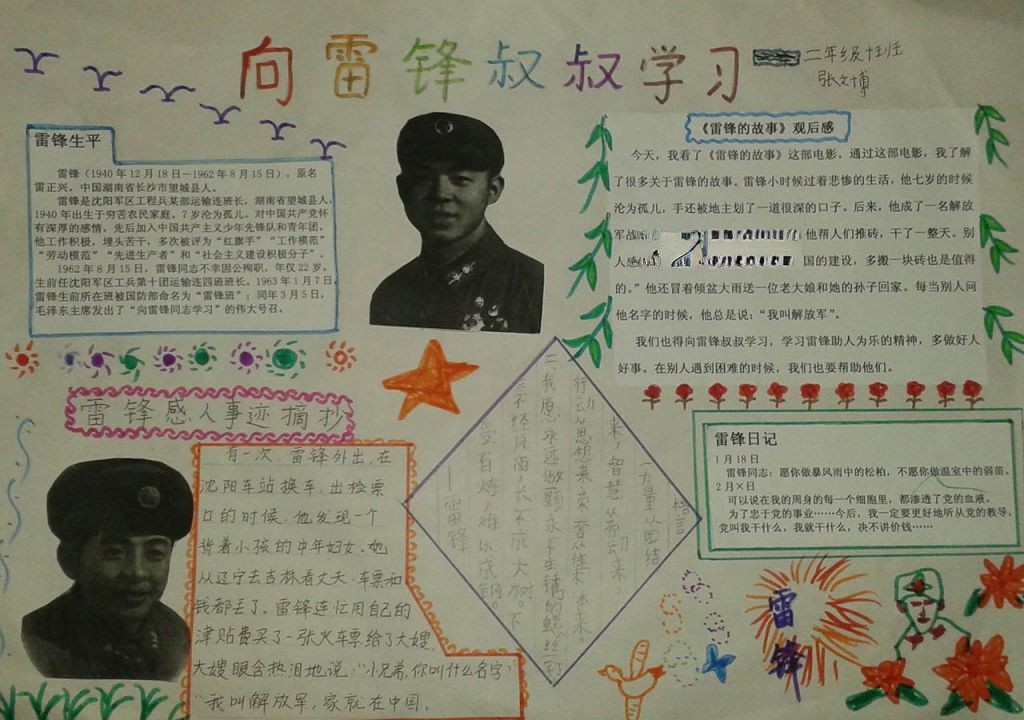 向雷锋叔叔学习
二年级十班
张文博
雷锋生平
雷锋（1940年12月18日—1962年8月15日），原名
雷正兴，中国湖南省长沙市望城县人。
雷锋是沈阳军区工程兵某部运输连班长，湖南省望城县人。
1940年出生于穷苦农民家庭。7岁沦为孤儿，对中国共产党怀
有深厚的感情，先后加入中国共产主义少年先锋队和青年团。
他工作积极，埋头苦干，多次被评为“红旗手”“工作模范”
“劳动模范”“先进生产者”和“社会主义建设积极分子”。
1962年8月15日，雷锋同志不幸因公殉职，年仅22岁。
生前任沈阳军区工兵第十团运输连四班班长。1963年1月7日，
雷锋生前所在班被国防部命名为“雷锋班”；同年3月5日，
毛泽东主席发出了“向雷锋同志学习”的伟大号召。
《雷锋的故事》观后感
今天，我看了《雷锋的故事》这部电影。通过这部电影，我了解
了很多关于雷锋的故事。雷锋小时候过着悲惨的生活，他七岁的时候
沦为孤儿，手还被地主划了一道很深的口子。后来，他成了一名解放
军战 他帮人们推砖，干了一整天。别
人感 国的建设，多搬一块砖也是值得
的。”他还冒着倾盆大雨送一位老大娘和她的孙子回家。每当别人问
他名字的时候，他总是说：“我叫解放军”。
我们也得向雷锋叔叔学习，学习雷锋助人为乐的精神，多做好人
好事。在别人遇到困难的时候，我们也要帮助他们。
雷锋感人事迹摘抄
有一次，雷锋外出，在
沈阳车站换车，出检票
口的时候，他发现一个
背着小孩的中年妇女。她
从辽宁去吉林看丈夫，车票和
钱都丢了。雷锋连忙用自己的
津贴费买了一张火车票给了大嫂
大嫂眼含热泪地说：“小兄弟，你叫什么名字”
“我叫解放军，家就在中国。
格言
一、力量从团结
来，智慧从劳动来，
行动从思想来，荣誉从集体来。
二、我愿永远做一颗永不生锈的螺丝钉
三、不经风雨，长不成大树，不
受百炼，难以成钢。
——雷锋
雷锋日记
1月18日
雷锋同志：愿你做暴风雨中的松柏，不愿你做温室中的弱苗。
2月×日
可以说在我的周身的每一个细胞里，都渗透了党的血液。
为了忠于党的事业……今后，我一定要更好地听从党的教导，
党叫我干什么，我就干什么，决不讲价钱……
雷
锋